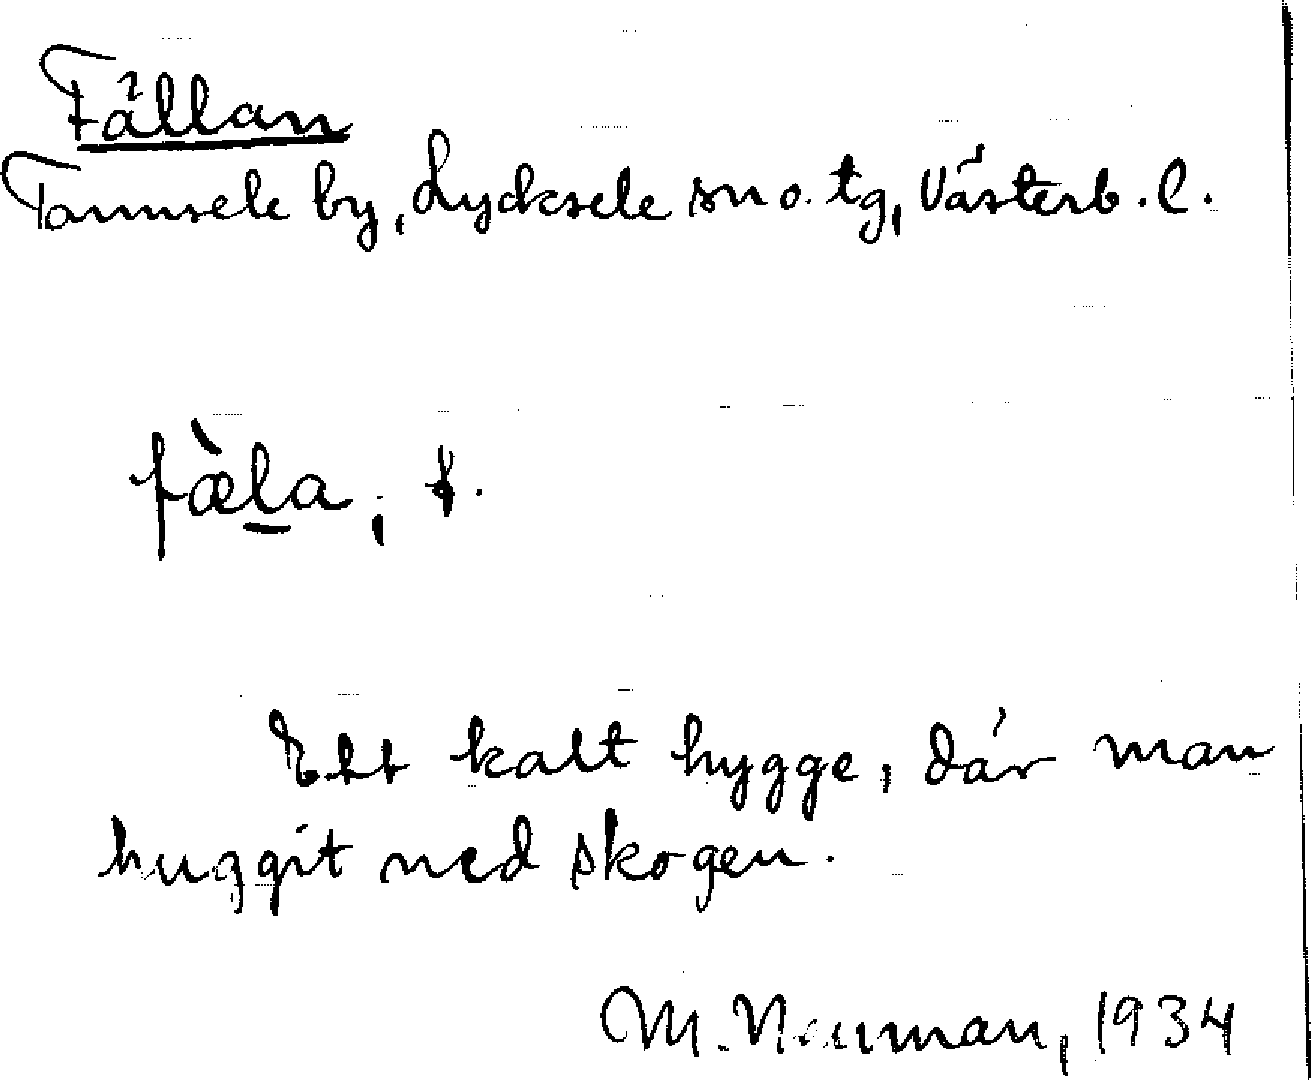 Fällan
Tannsele by, Lycksele sn o. tg, Västerb. l.
fæ̀l̲a, f.
Ett kalt hygge, där man
huggit ned skogen.
M. Neuman, 1934